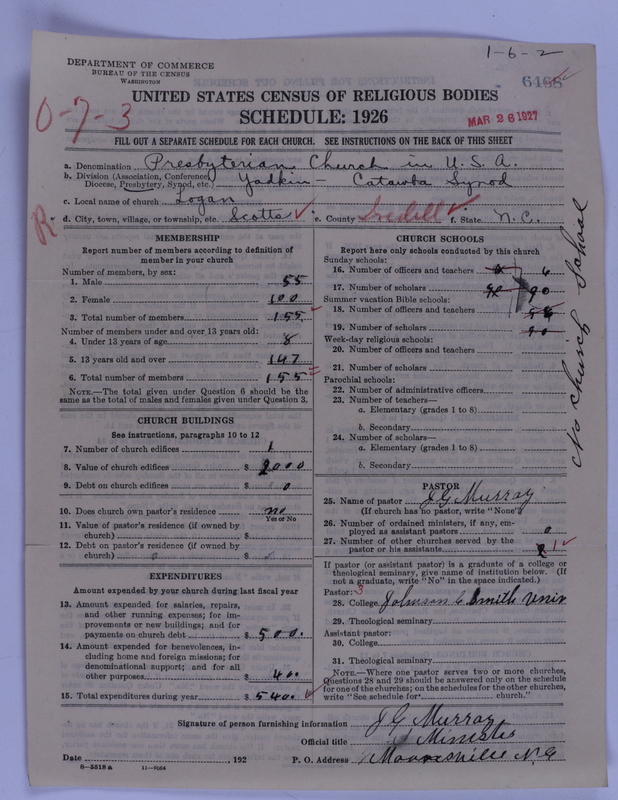 1-6-2
DEPARTMENT OF COMMERCE
BUREAU OF THE CENSUS
WASHINGTON
UNITED STATES CENSUS OF RELIGIOUS BODIES
SCHEDULE: 1926
MAR 26 1927
0-7-3
FILL OUT A SEPARATE SCHEDULE FOR EACH CHURCH. SEE INSTRUCTIONS ON THE BACK OF THIS SHEET
a. Denomination Presbyterian Church in U.S.A.
b. Division (Association, Conference, Diocese, Presbytery, Synod, etc.) Yadkin - Catawba Synod
c. Local name of church Logan
R
d. City, town, village, or township, etc. Scotts e. County Iredell f. State N.C.
MEMBERSHIP
Report number of members according to definition of
member in your church
Number of members, by sex:
1. Male 55
2. Female 100
3. Total number of members 155
Number of members under and over 13 years old:
4. Under 13 years of age 8
5. 13 years old and over 147
6. Total number of members 155
NOTE.—The total given under Question 6 should be the
same as the total of males and females given under Question 3.
CHURCH BUILDINGS
See instructions, paragraphs 10 to 12
7. Number of church edifices 1
8. Value of church edifices $ 2000
9. Debt on church edifices $ 0
10. Does church own pastor's residence? no
Yes or No
11. Value of pastor's residence (if owned by
church) $
12. Debt on pastor's residence (if owned by
church) $
EXPENDITURES
Amount expended by your church during last fiscal year
13. Amount expended for salaries, repairs,
and other running expenses; for im-
provements or new buildings; and for
payments on church debt $ 500.
14. Amount expended for benevolences, in-
cluding home and foreign missions; for
denominational support; and for all
other purposes $ 40.
15. Total expenditures during year $ 540.
CHURCH SCHOOLS
Report here only schools conducted by this church
Sunday schools:
16. Number of officers and teachers 6
17. Number of scholars 90
Summer vacation Bible schools:
18. Number of officers and teachers
19. Number of scholars 90
Week-day religious schools:
20. Number of officers and teachers
21. Number of scholars
Parochial schools:
22. Number of administrative officers
23. Number of teachers—
a. Elementary (grades 1 to 8)
b. Secondary
24. Number of scholars—
a. Elementary (grades 1 to 8)
b. Secondary
No church school
PASTOR
25. Name of pastor J G Murray
(If church has no pastor, write "None")
26. Number of ordained ministers, if any, em-
ployed as assistant pastors 0
27. Number of other churches served by the
pastor or his assistants 1
If pastor (or assistant pastor) is a graduate of a college or
theological seminary, give name of institution below. (If
not a graduate, write "No" in the space indicated.)
Pastor: 3
28. College Johnson C Smith Univ
29. Theological seminary
Assistant pastor:
30. College
31. Theological seminary
NOTE.—Where one pastor serves two or more churches,
Questions 28 and 29 should be answered only on the schedule
for one of the churches; on the schedules for the other churches,
write "See schedule for church."
Signature of person furnishing information J G Murray
Official title Minister
Date , 192 P. O. Address Mooresville N.C
8-5518 a